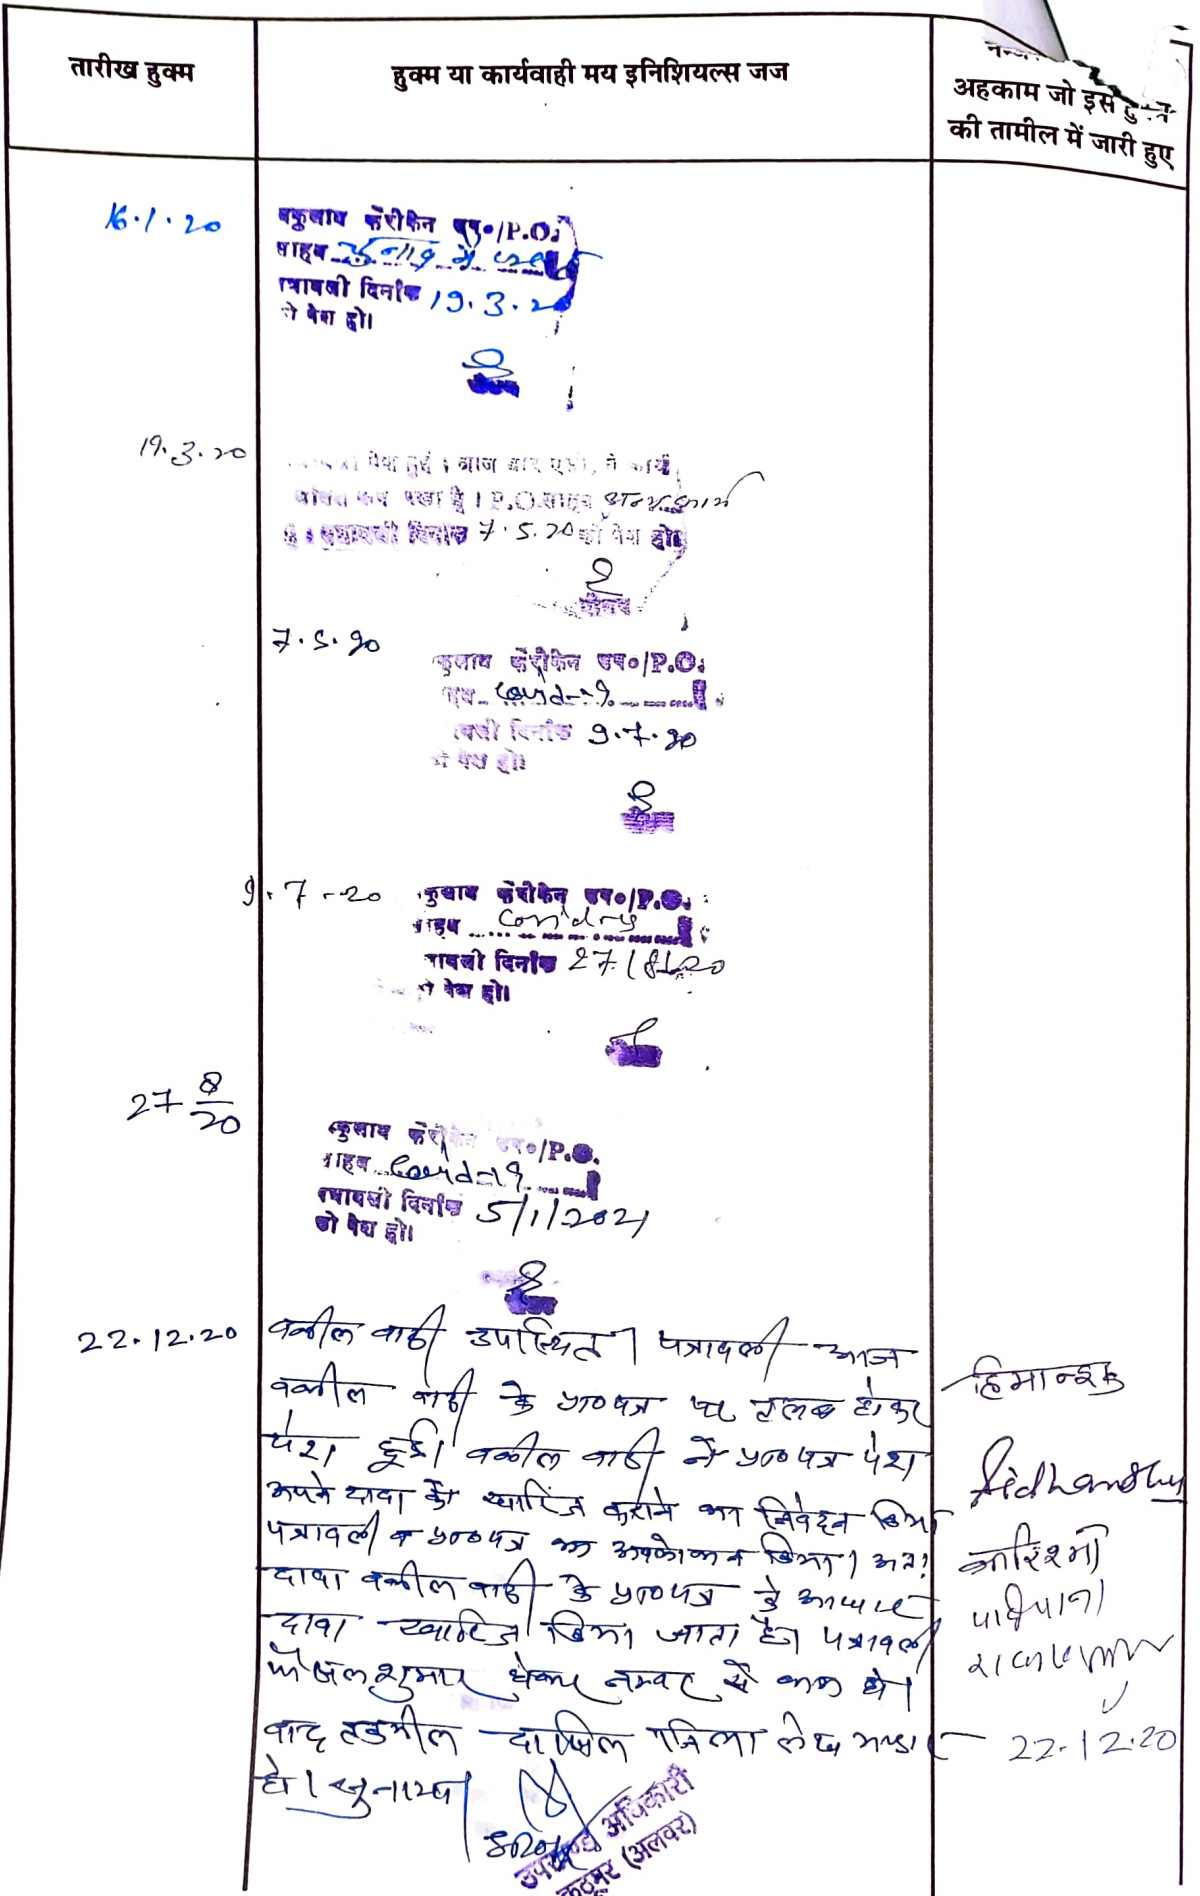 तारीख हुक्म
हुक्म या कार्यवाही मय इनिशियल्स जज
अहकाम जो इस
की तामील में जारी हुए
16.1.20
वकुलाय फरीकेन उप०/P.O.
साहब चुनाव में व्यस्त
पत्रावली दिनांक 19.3.20
को पेश हो।
19.3.20
पेश हुई। आज बार एसो. ने कार्य
रखा है। P.O. साहब अन्य कार्य
पत्रावली दिनांक 7.5.20 को पेश हो।
7.5.20
कुलाय फरीकेन उप०/P.O.
Covid-19
वली दिनांक 9.7.20
को पेश हो।
9.7.20
कुलाय फरीकेन उप०/P.O.
साहब Covid-19
पत्रावली दिनांक 27/8/20
को पेश हो।
27 8/20
वकुलाय फरीकेन उप०/P.O.
साहब Covid-19
पत्रावली दिनांक 5/1/2021
को पेश हो।
22.12.20
वकील वादी उपस्थित। पत्रावली आज
वकील वादी के प्रा०पत्र पर तलब होकर
पेश हुई। वकील वादी ने प्रा०पत्र पेश
अपने दावा को खारिज कराने का निवेदन किया
पत्रावली व प्रा०पत्र का अवलोकन किया। अतः
दावा वकील वादी के प्रा०पत्र के आधार
दावा खारिज किया जाता है। पत्रावली
फैसल शुमार होकर नम्बर से कम हो।
बाद तकमील दाखिल जिला लेख भण्डार
हो। सुनाया
हिमान्शु
Sidhanshu
कारिश्मा
22.12.20
उपखण्ड अधिकारी
कठूमर (अलवर)